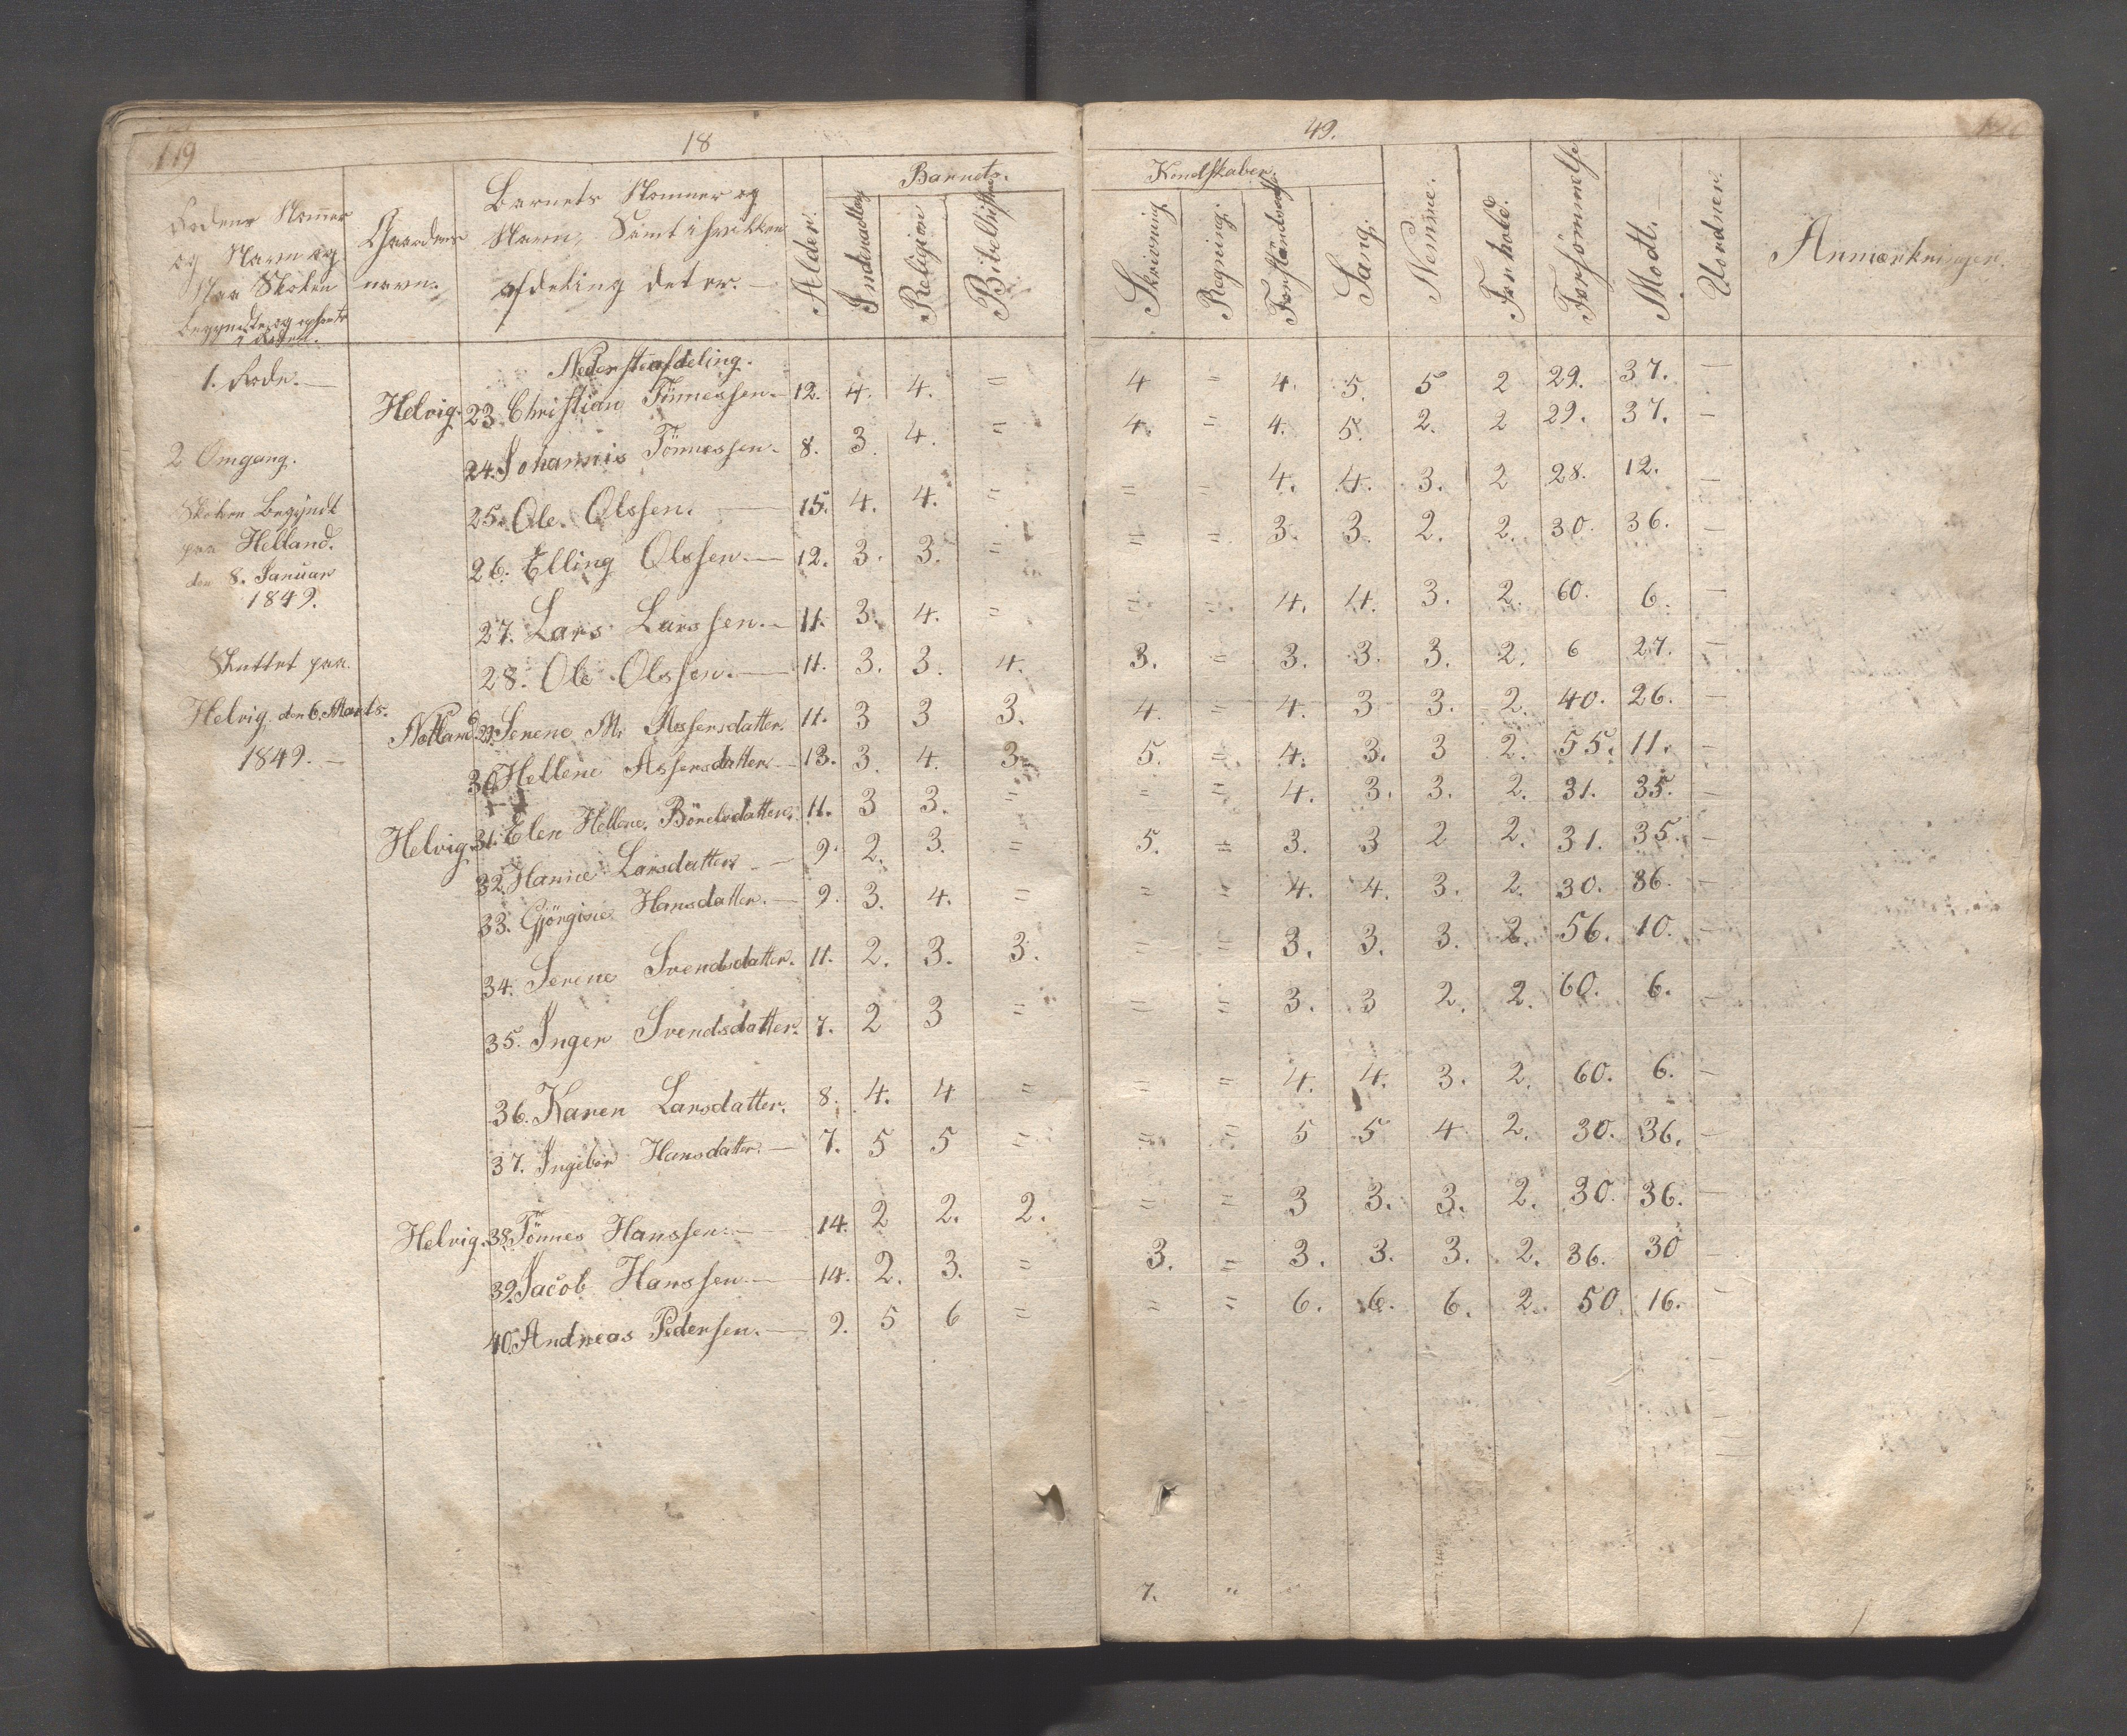 119
18
49.
Rodens Nommer
og Navn og
Naar Skolen
begyndte og ophørte
i Roden.
Gaardens
navn.
Barnets Nommer og
Navn, Samt i hvilken
afdeling det er. —
Alder.
Barnets.
Religion
Kundskaber.
Skrivning
Regning.
Sang.
Nemme.
Forhold.
Forsömmelse
Modt.
Uordner.
Anmærkninger.
Nedersteafdeling.
1. Rode. —
2 Omgang.
Skolen Begyndt
paa Helland.
den 8. Januar
1849.
Sluttet paa
Helvig. den 6. Marts.
1849. —
Helvig. 23. Christian Tönnessen. — 12. 4. 4. = 4 = 4. 5. 5 2 29. 37. —
24. Johannis Tönnessen. 8. 3. 4. = 4. = 4. 5. 2. 2 29. 37. —
25. Ole. Olssen. — 15. 4. 4. = = = 4. 4. 3. 2 28. 12. —
26. Elling Olssen. — 12. 3. 3. = = = 3. 3. 2. 2. 30. 36. —
27. Lars Larssen. — 11. 3. 4. = = = 4. 4. 3. 2. 60. 6. —
28. Ole Olssen. — 11. 3. 3. 4. 3. = 3. 3. 3. 2. 6 27. —
Nøtland. 29. Serene M. Assersdatter. 11. 3 3 3. 4. = 4. 3 3. 2. 40. 26. —
30. Hellene Assersdatter. — 13. 3. 4. 3. 5. = 4. 3. 3 2. 55. 11. —
Helvig. 31. Elen Hellene. Börelsdatter. 11. 3 3. = = = 4. 3. 3. 2. 31. 35. —
32. Hanne Larsdatter. — 9. 2. 3. = 5. = 3. 3 2 2. 31. 35. —
33. Gjörgine Hansdatter. — 9. 3. 4. = = = 4. 4. 3. 2. 30. 36. —
34. Serene Svendsdatter. 11. 2. 3. 3. = = 3. 3. 3. 2. 56. 10. —
35. Inger Svendsdatter. 7. 2 3 = = = 3. 3 2. 2. 60. 6. —
36. Karen Larsdatter. 8. 4. 4 = = = 4. 4. 3. 2. 60. 6. —
37. Ingebor Hansdatter. — 7. 5 5 = = = 5 5 4 2. 30. 36. —
Helvig. 38. Tönnes Hanssen. — 14. 2 2. 2. = = 3 3. 3. 2. 30. 36. —
39. Jacob Hanssen. — 14. 2. 3. = 3. = 3. 3. 3. 2. 36. 30 —
40. Andreas Pedersen. — 9. 5 6 = = = 6. 6. 6. 2. 50. 16. —
7. "